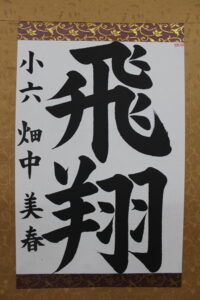 飛翔
小六 畑中美春